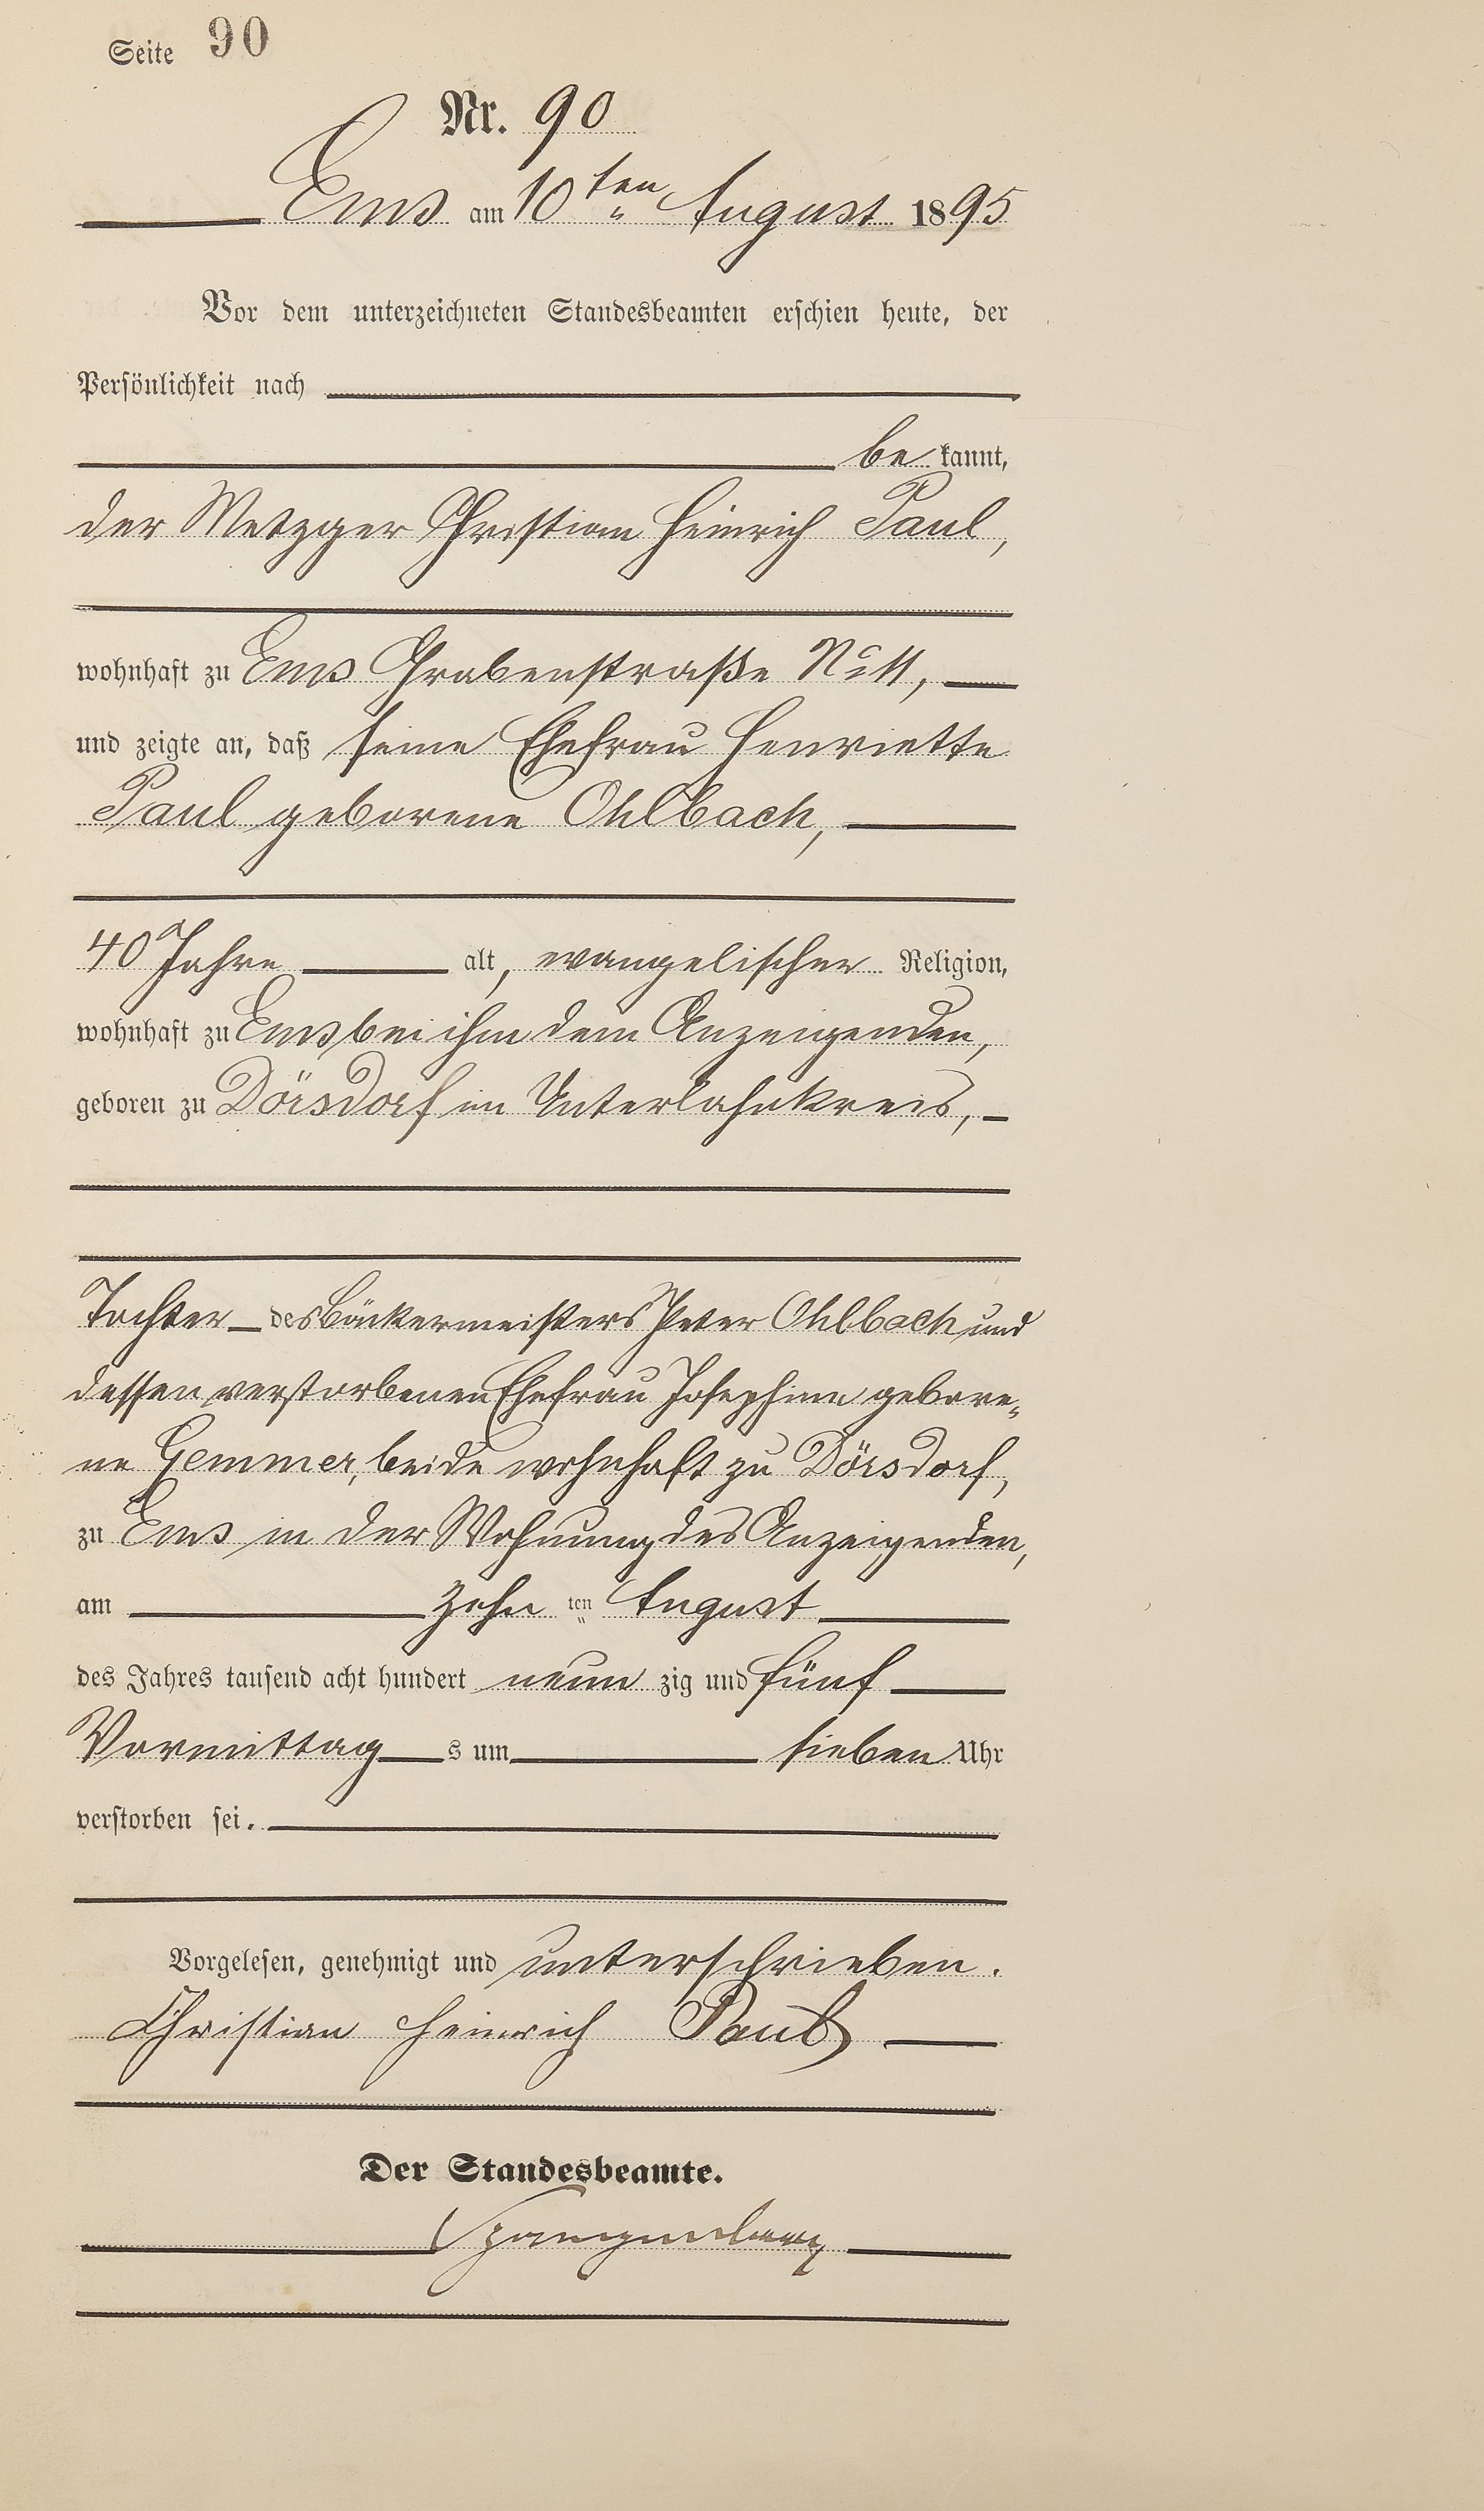 Seite 90
Nr. 90
Ems am 10ten August 1895
Vor dem unterzeichneten Standesbeamten erschien heute, der
Persönlichkeit nach
bekannt,
der Metzger Christian Heinrich Paul,
wohnhaft zu Ems Grabenstraße No 11,
und zeigte an, daß seine Ehefrau Henriette
Paul geborene Ohlbach,
40 Jahre alt, evangelischer Religion,
wohnhaft zu Ems bei ihm dem Anzeigenden,
geboren zu Dörsdorf im Unterlahnkreis,
Tochter des Bäckermeisters Peter Ohlbach und
dessen verstorbenen Ehefrau Josephine gebore-
ne Gemmer, beide wohnhaft zu Dörsdorf,
zu Ems in der Wohnung des Anzeigenden,
am zehnten August
des Jahres tausend acht hundert neunzig und fünf
Vormittags um sieben Uhr
verstorben sei.
Vorgelesen, genehmigt und unterschrieben.
Christian Heinrich Paul
Der Standesbeamte.
Spangenberg